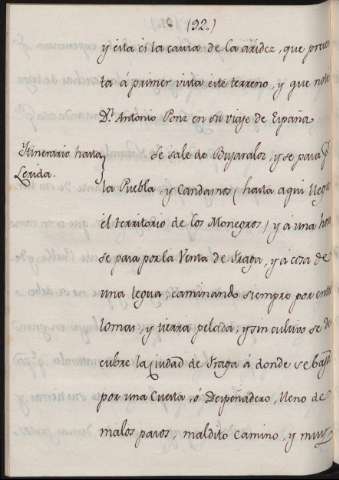 (92.)
y esta es la causa de la aridez, que presen
ta á primer vista este terreno, y que notó
Dn. Antonio Ponz en su viaje de España.
Itinerario hasta Lerida.
Se sale de Bujaraloz, y se pasa p.r
la Puebla, y Candasnos (hasta aqui llega
el territorio de los Monegros) y á una hora
se pasa por la Venta de Fraga, y á cosa de
una legua, caminando siempre por entre
lomas, y tierra pelada, y sin cultivo se des
cubre la Ciudad de Fraga á donde se baja
por una Cuesta, ó Despeñadero, lleno de
malos pasos, maldito camino, y muy